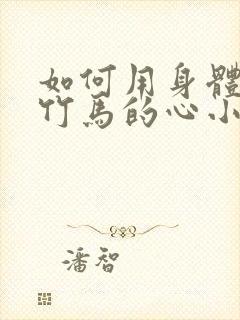 如何用身體
竹馬的心小
潘智